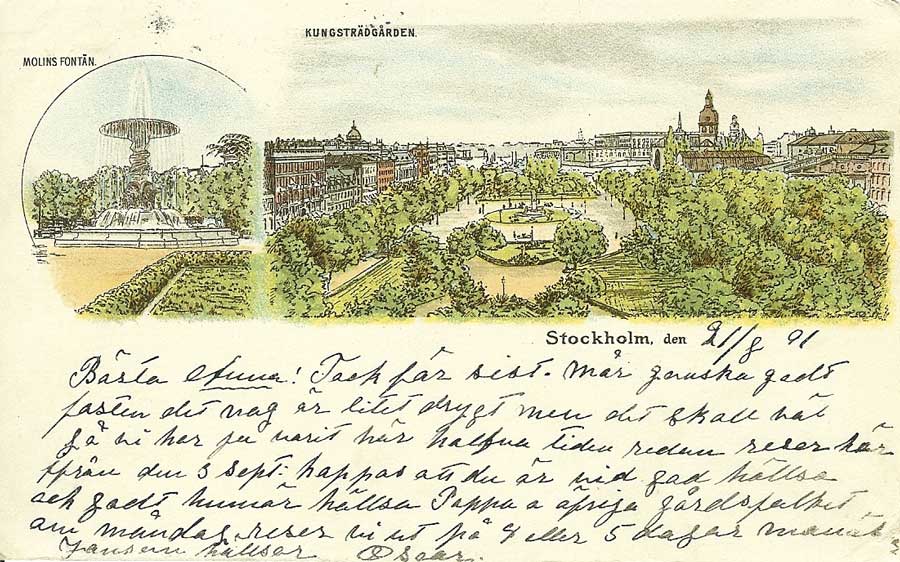 KUNGSTRÄDGÅRDEN.
MOLINS FONTÄN.
Stockholm, den 21/8 01
Bästa Anna! Tack för sist. Mår ganska godt
fasten det nog är litet drygt men det skall väl
gå vi har ju varit här halfva tiden redan reser här
ifrån den 3 sept: hoppas att du är vid god hällsa
och godt humör hällsa Pappa o öfriga gårdsfolket
om måndag reser vi ut på 4 eller 5 dagar
hällsar Oscar.